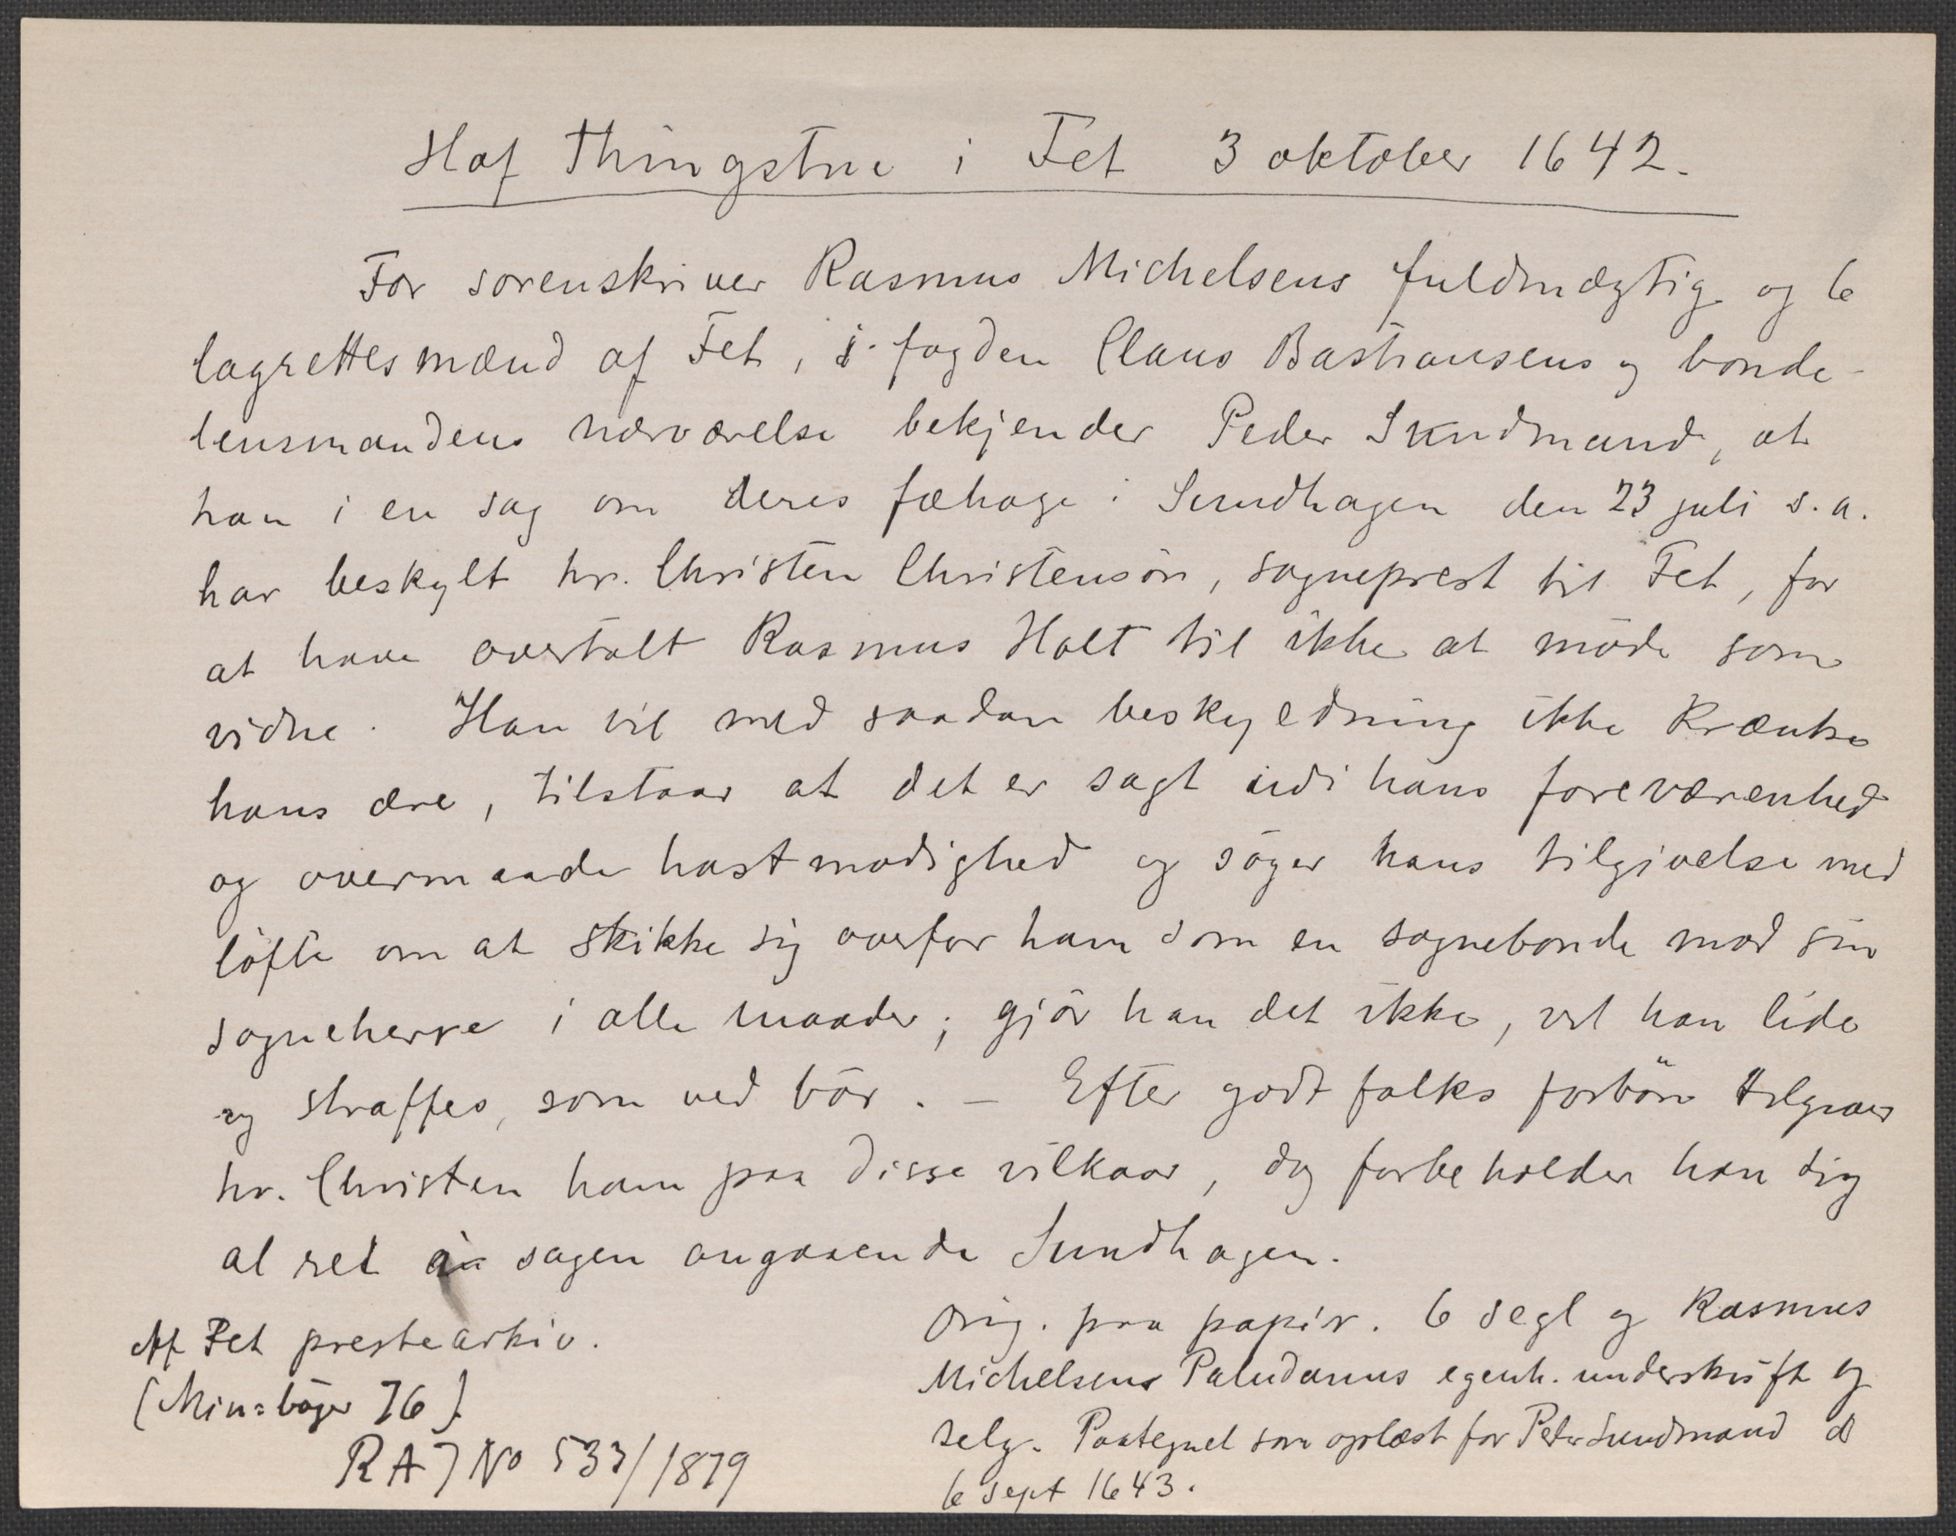 Hof Thingstue i Fet 3 oktober 1642.
For sorenskriver Rasmus Michelsens fuldmægtig og 6
lagrettesmænd af Fet, i fogden Claus Bastiansens og bonde-
lensmandens nærværelse bekjender Peder Sundmand, at
han i en sag om deres fæhage i Sundhagen den 23 juli s. a.
har beskylt hr. Christen Christensön, sogneprest til Fet, for
at have overtalt Rasmus Holt til ikke at möde som
vidne. Han vil med saadan beskyldning ikke krænke
hans ære, tilstaar at det er sagt udi hans foreværenhed
og overmaade hastmodighed og söger hans tilgivelse med
löfte om at skikke sig overfor ham som en sognebonde mod sin
sogneherre i alle maader; gjör han det ikke, vil han lide
og straffes, som ved bör. – Efter godt folks forbön tilgiver
hr. Christen ham paa disse vilkaar, dog forbeholder han sig
al ret i sagen angaaende Sundhagen.
Af Fet prestearkiv.
(Min=böger 76).
RA J No 533/1879
Orig. paa papir. 6 segl og Rasmus
Michelsens Paludanus egenh. underskrift og
selg. Paategnet som oplæst for Peder Sundmand d
6 sept 1643.